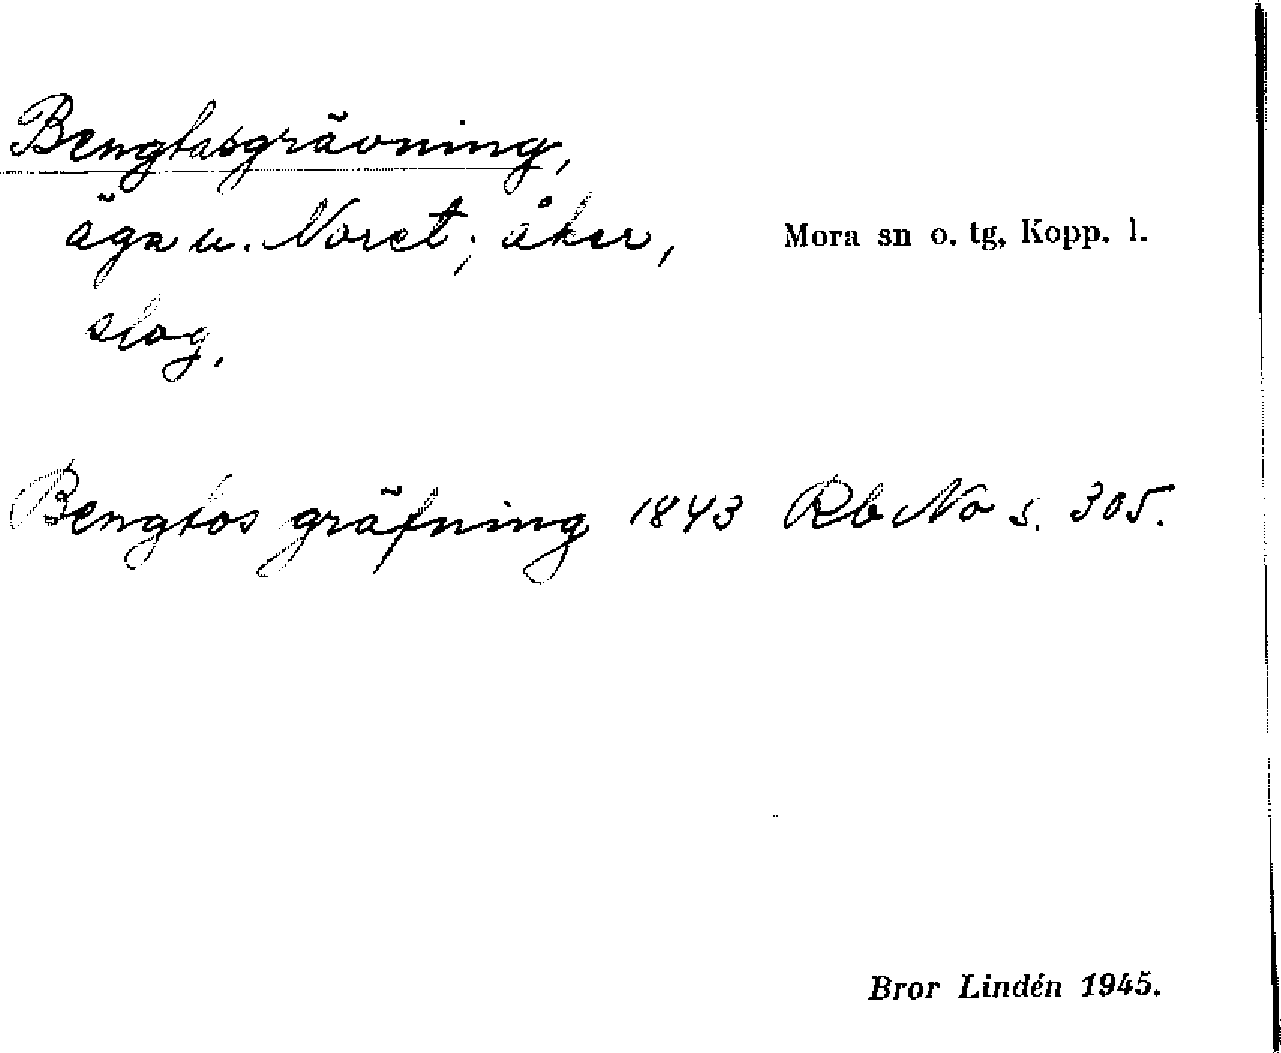 Bengtasgrävning,
äga u. Noret; åker,
slog.
Mora sn o. tg, Kopp. l.
Bengtos gräfning 1843 Rb No s. 305.
Bror Lindén 1945.